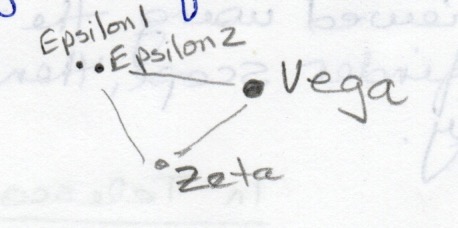 Epsilon1
Epsilon2
Vega
Zeta